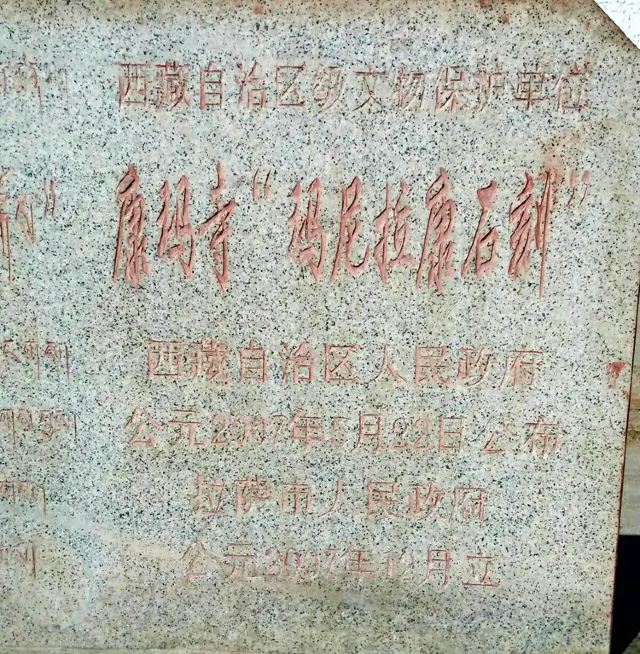 西藏自治区级文物保护单位
康玛寺“玛尼拉康石刻”
西藏自治区人民政府
公元2007年5月22日公布
拉萨市人民政府
公元2007年12月立